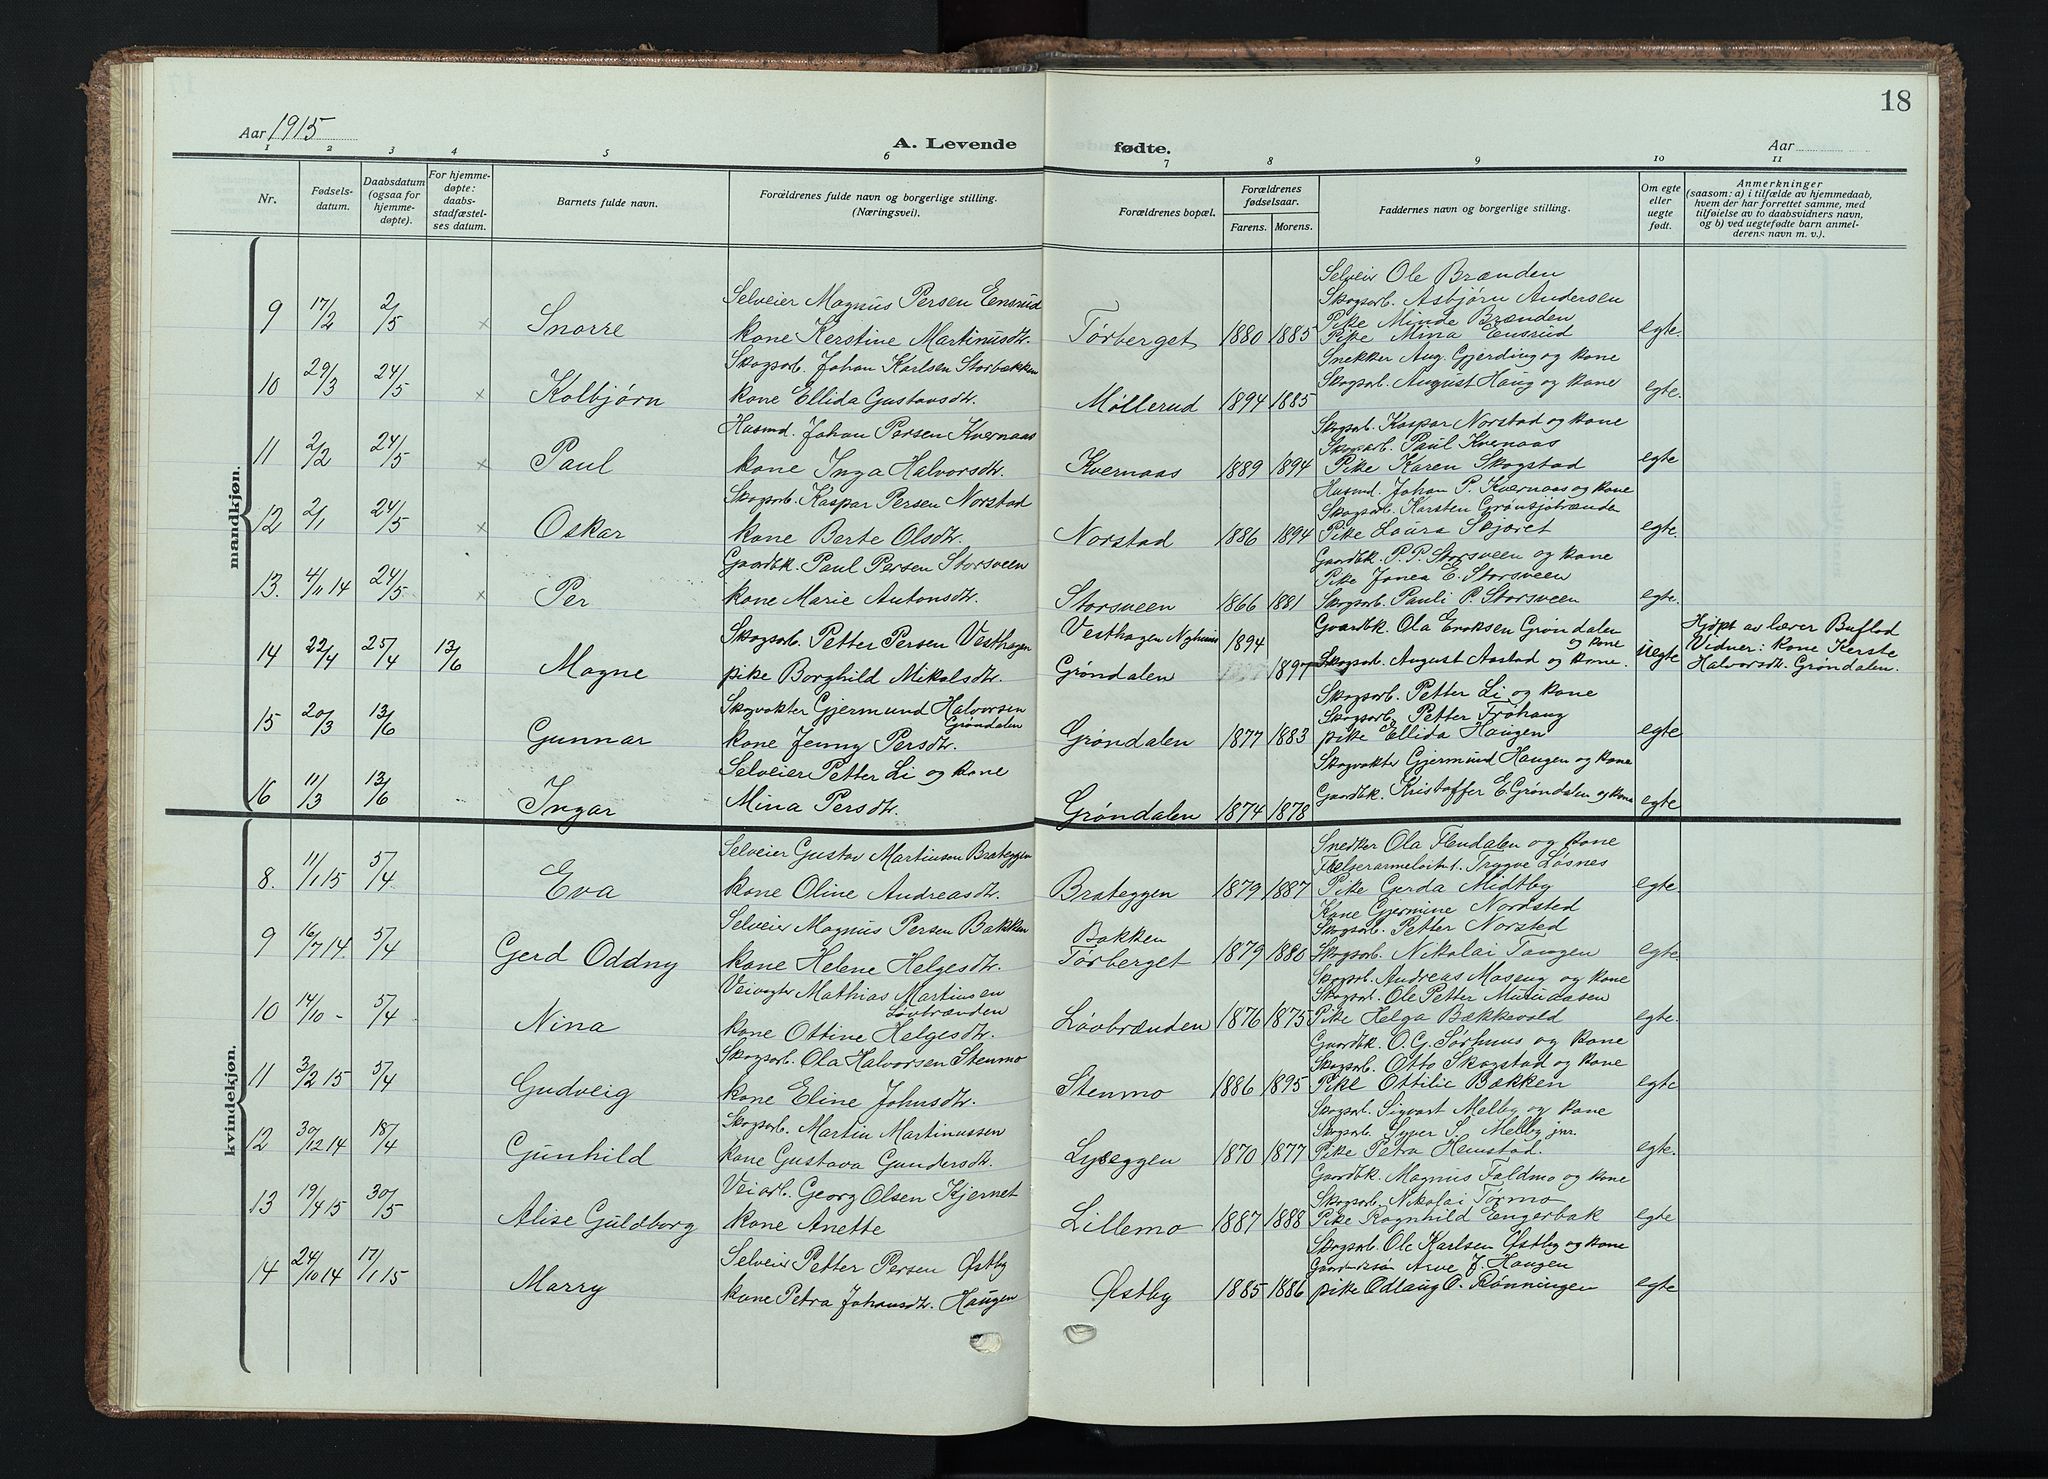 18
Aar 1915
A. Levende fødte.
Aar
1 2 3 4 5 6 7 8 9 10 11
Nr.
Fødsels-
datum.
Daabsdatum
(ogsaa for
hjemme-
døpte).
For hjemme-
døpte:
daabs-
stadfæstel-
ses datum.
Barnets fulde navn.
Forældrenes fulde navn og borgerlige stilling.
(Næringsvei).
Forældrenes bopæl.
Forældrenes
fødselsaar.
Farens. Morens.
Faddernes navn og borgerlige stilling.
Om egte
eller
uegte
født.
Anmerkninger
(saasom: a) i tilfælde av hjemmedaab,
hvem der har forrettet samme, med
tilføielse av to daabsvidners navn,
og b) ved uegtefødte barn anmel-
derens navn m. v.).
mandkjøn.
9 17/2 2/5 × Snorre
Selveier Magnus Persen Ensrud
kone Kerstine Martinusdtr.
Tørberget 1880 1885
Selveier Ole Brænden
Skogsarb. Asbjørn Andersen
Pike Minde Brænden
Pike Mina Ensrud
egte.
10 29/3 24/5 × Kolbjørn
Skogsarb. Johan Karlsen Storbækken
kone Ellida Gustavsdtr.
Møllerud 1894 1885
Snekker Aug. Gjerding og kone
Skogsarb. August Haug og kone
egte.
11 2/2 24/5 × Paul
Husmd. Johan Persen Kvernaas
kone Inga Halvorsdtr.
Kvernaas 1889 1894
Skogsarb. Kaspar Norstad og kone
Skogsarb. Paul Kvernaas
Pike Karen Skogstad
egte
12 2/1 24/5 × Oskar
Skogsarb. Kaspar Persen Norstad
kone Berte Olsdtr.
Norstad 1886 1894
Husmd. Johan P. Kvernaas og kone
Skogsarb. Karsten Grønsjøbrænda
Pike Laura Skjæret
egte.
13. 4/11 14 24/5 × Per
Gaardbk. Paul Persen Storsveen
kone Marie Antonsdtr.
Storsveen 1866 1881
Gaardbk. P. P. Storsveen og kone
Pike Jonea E. Storsveen
Skogsarb. Pauli P. Storsveen
egte.
14 22/4 25/4 13/6 Magne
Skogsarb. Petter Persen Vesthagen
pike Borghild Mikalsdtr.
Vesthagen 1894
Grøndalen 1897
Gaardbk. Ola Eriksen Grøndalen
og kone
Skogsarb. August Aastad og kone.
uegte
Hjdpt av lærer Buflod
Vidner: kone Kerste
Halvorsdtr. Grøndalen.
15 20/3 13/6 Gunnar
Skogvokter Gjermund Halvorsen
Grøndalen
kone Jenny Persdtr.
Grøndalen 1877 1883
Skogsarb. Petter Li og kone
Skogsarb. Petter Frøhaug
pike Ellida Haugen
egte
16 11/3 13/6 Ingar
Selveier Petter Li og kone
Mina Persdtr.
Grøndalen 1874 1878
Skogvokter Gjermund Haugen og kone
Gaardbk. Kristoffer E. Grøndalen og kone
egte
kvindekjøn.
8. 11/1 15 5/4 Eva
Selveier Gustav Martinsen Brateggen
kone Oline Andreasdtr.
Brateggen 1879 1887
Snedker Ola Flendalen og kone
Trygve Løsnes
Pike Gerda Midtby
egte
9 16/7 14. 5/4 Gerd Oddny
Selveier Magnus Persen Bakken
kone Helene Helgesdtr.
Bakken
Tørberget 1879 1880
Kone Gjermine Nordsted
Skogsarb. Petter Norsted
Skogsarb. Nikolai Tangen
egte
10 14/10 - 5/4 Nina
Veivogter Mathias Martinsen
Løvbrænden
kone Ottine Helgesdtr.
Løvbrænden 1876 1875
Skogsarb. Andreas Moseng og kone
Skogsarb. Ole Petter
Pike Helga Bækkevold
egte.
11 3/2 15 5/4 Gudveig
Skogsarb. Ola Halvorsen Stenmo
kone Eline Johnsdtr.
Stenmo 1886 1895
Gaardbk. O. G. Sørhuus og kone
Skogsarb. Otto Skogstad og kone
Pike Ottilie Bækken
egte
12 30/12 14 18/4 Gunhild
Skogsarb. Martin Martinussen
kone Gustava Gundersdtr.
Lyseggen 1870 1877
Skogsarb. Sigvart Melby og kone
Skogsarb. Syver S. Melby jnr.
Pike Petra Hemstad.
egte.
13 19/4 15 30/5 Alise Guldborg
Veiarb. Georg Olsen Kjernet
kone Anette
Lillemo 1887 1888
Gaardbk. Magnus Faldmo og kone
Skogsarb. Nikolai Tørmo
Pike Ragnhild Engerbak
egte
14 24/10 14 17/1 15 Marry
Selveier Petter Persen Østby
kone Petra Johansdtr. Haugen
Østby 1885 1886
Skogsarb. Ole Karlsen Østby og kone
Arve J. Haugen
pike Odlaug O. Rønningen
egte